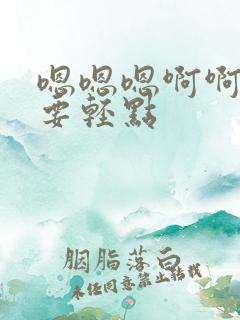 嗯嗯嗯啊啊
要轻點
胭脂落白
未任同意禁止转载